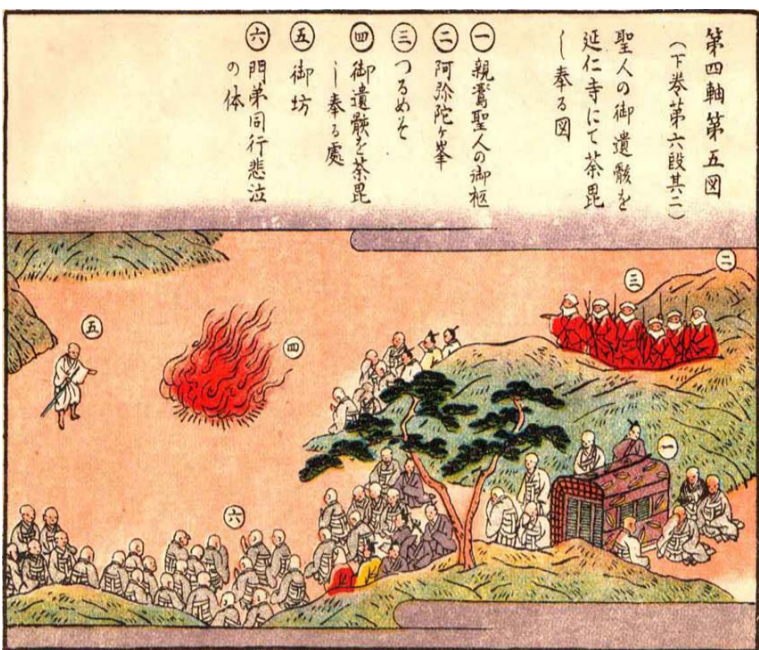 第四軸第五図
（下巻第六段其二）
聖人の御遺骸を
延仁寺にて荼毘
し奉る図
一 親鸞聖人の御柩
二 阿弥陀ヶ峯
三 つるめそ
四 御遺骸を荼毘
し奉る處
五 御坊
六 門弟同行悲泣
の体
二
三
四
五
一
六